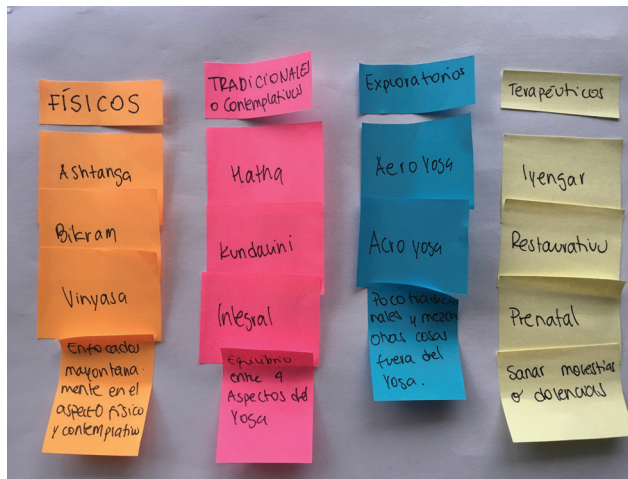 FÍSICOS
Ashtanga
Bikram
Vinyasa
Enfocados
mayoritaria.
mente en el
aspecto físico
y contemplativo
TRADICIONALES
o Contemplativos
Hatha
Kundalini
Integral
Equilibrio
entre 4
Aspectos del
Yoga
Exploratorios
Aero Yoga
Acro yoga
Poco tradicio
nales y mezcla
otras cosas
fuera del
Yoga.
Terapéuticos
Iyengar
Restaurativo
Prenatal
Sanar molestias
o dolencias